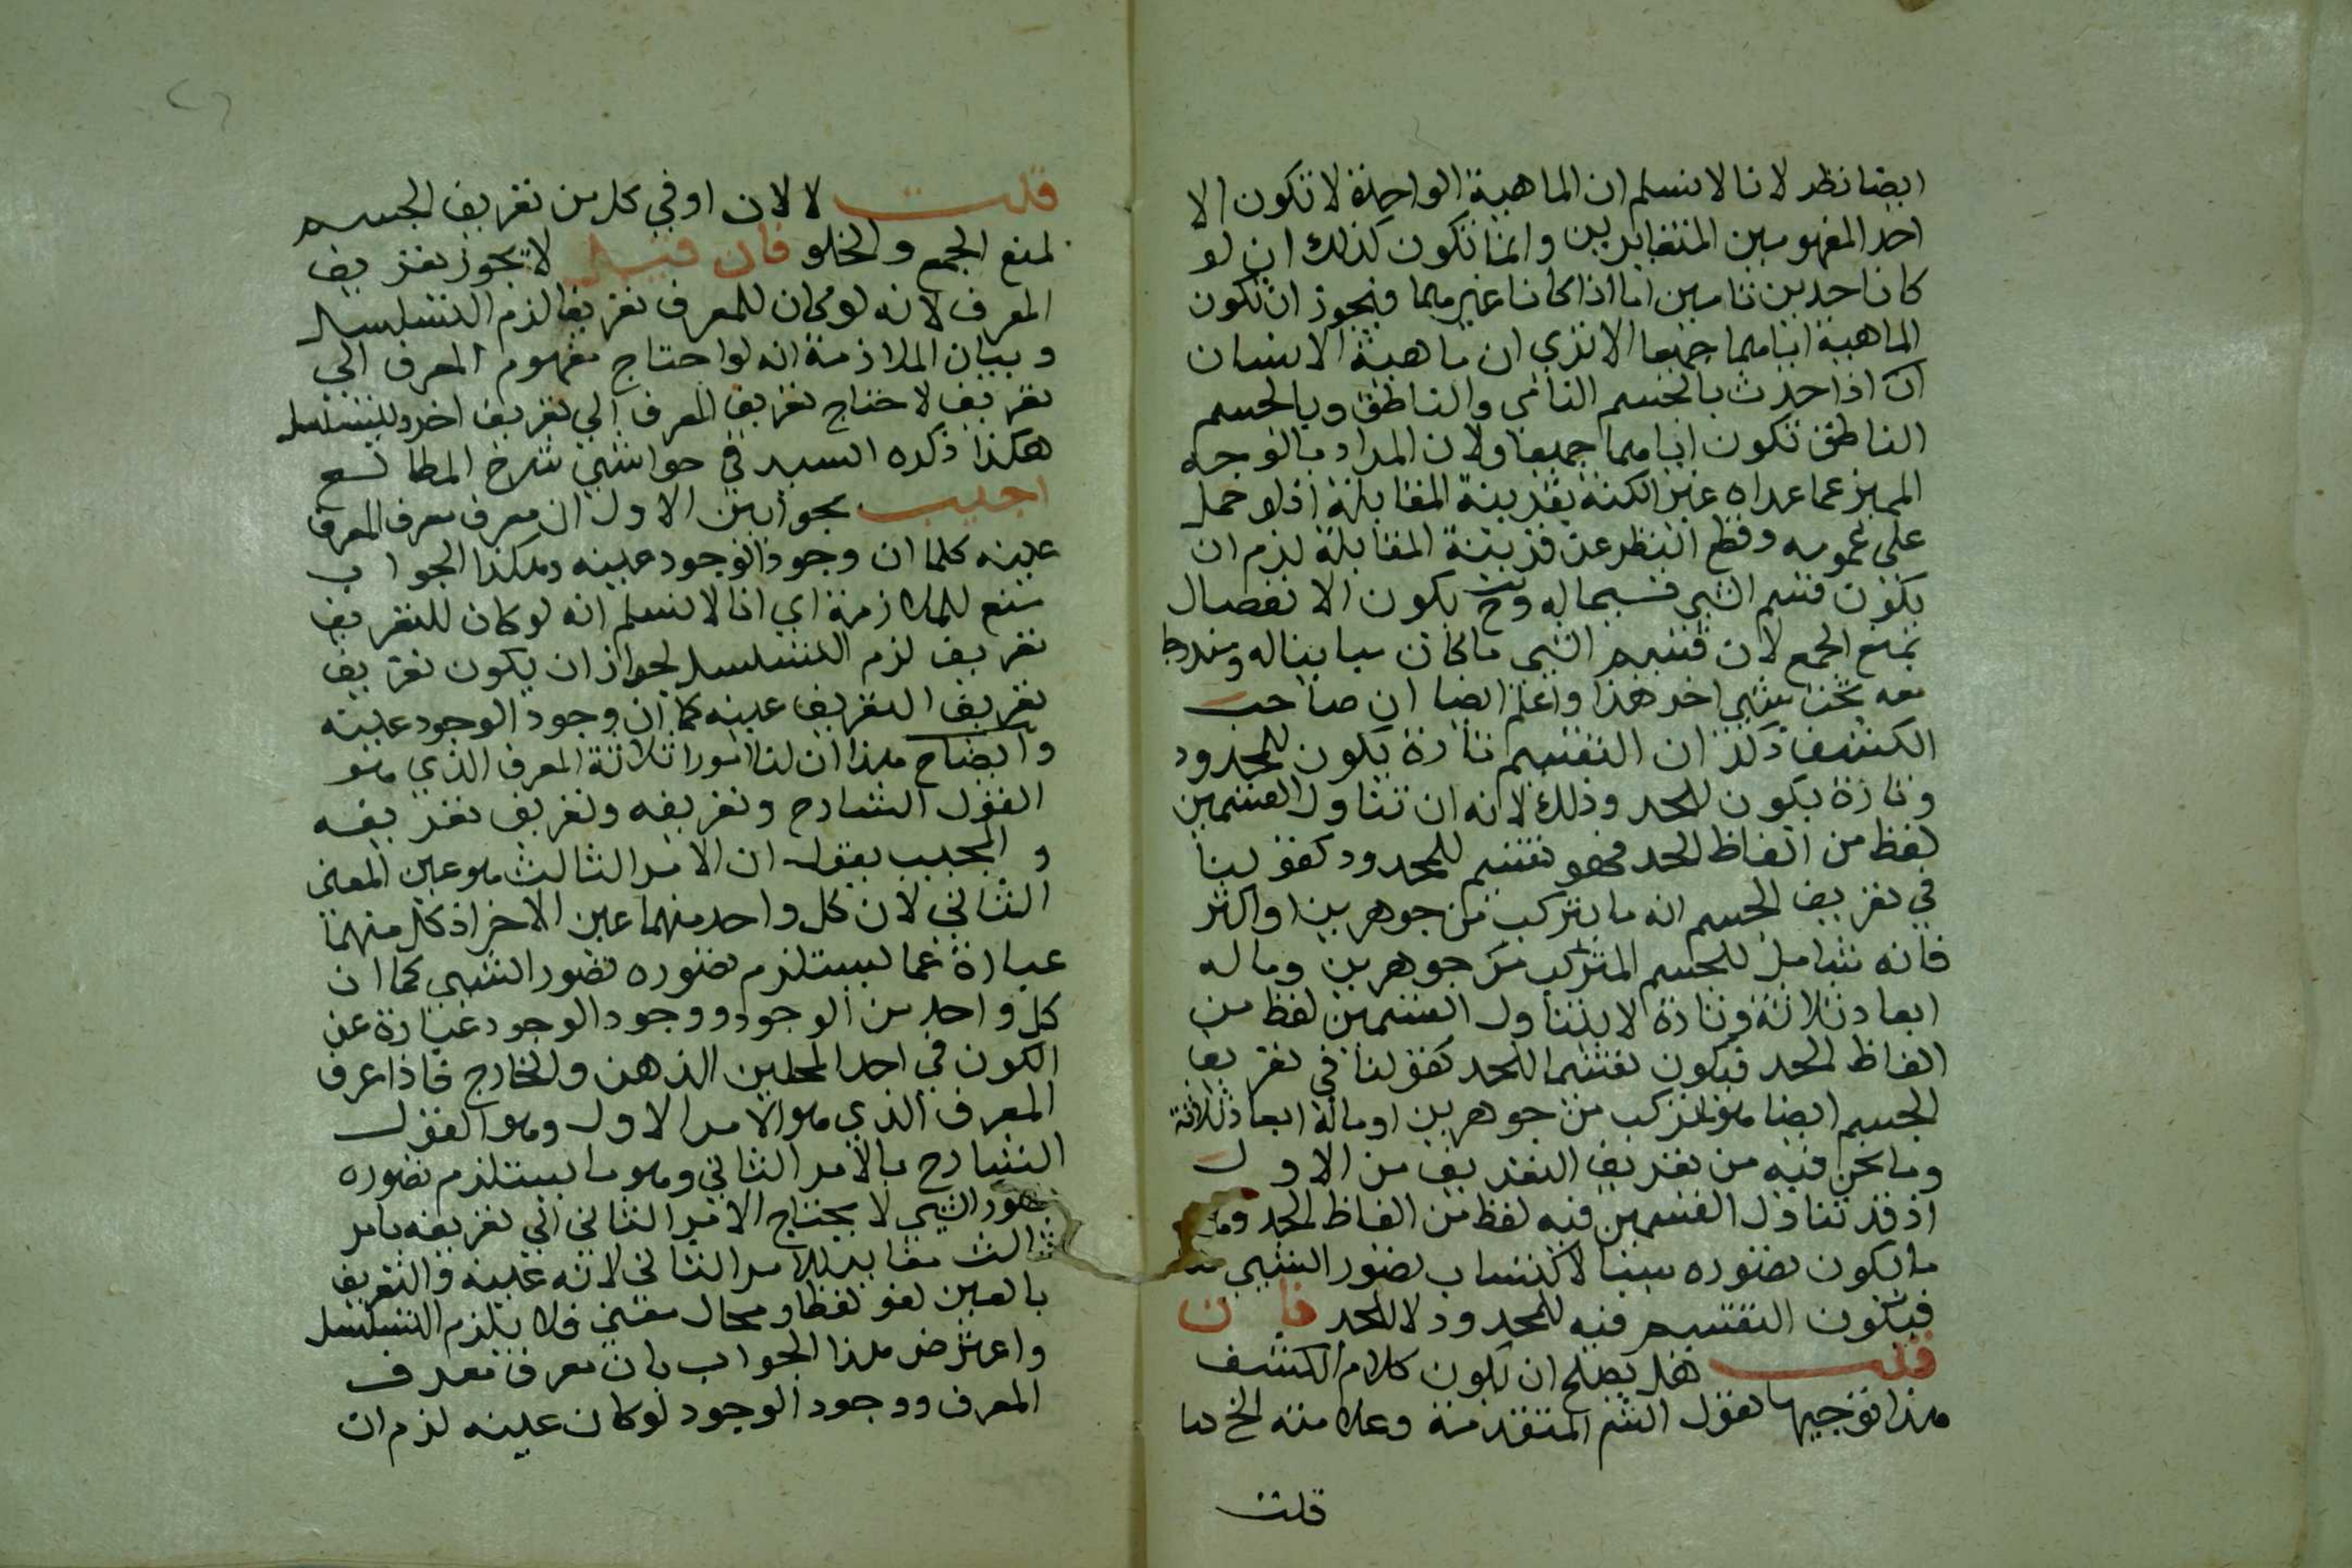 ايضا نظر لانا لا نسلم ان الماهية الواحدة لا تكون الا
احد المفهومين المتغايرين وانما تكون كذلك ان لو
كانا حدين تامين اما اذا كانا غيرهما فيجوز ان تكون
الماهية اياهما جميعا الا تري ان ماهية الانسان
اذا حدث بالجسم النامي والناطق وبالجسم
الناطق تكون اياهما جميعا ولان المراد بالوجه
المميز عما عداه غير الكنه بقرينة المقابلة اذ لو حمل
على عمومه وقطع النظر عن قرينة المقابلة لزم ان
يكون قسم الشي قسيما له وح يكون الانفصال
بمنع الجمع لان قسيم الشي ما كان مباينا له ومندرجا
معه تحت شي اخر هذا واعلم ايضا ان صاحب
الكشف ذكر ان التقسيم تارة يكون للمحدود
وتارة يكون للحد وذلك لانه ان تناول القسمين
لفظ من الفاظ الحد فهو تقسيم للمحدود كقولنا
في تعريف الجسم انه ما يتركب من جوهرين او اكثر
فانه شامل للجسم المتركب من جوهرين وما له
ابعاد ثلاثة وتارة لا يتناول القسمين لفظ من
الفاظ الحد فيكون تقسيما للحد كقولنا في تعريف
الجسم ايضا هو المركب من جوهرين او ماله ابعاد ثلاثة
وما نحن فيه من تعريف التعريف من الاول
اذ قد تناول القسمين فيه لفظ من الفاظ الحد وهو
ما يكون تصوره سببا لاكتساب تصور الشي
فيكون التقسيم فيه للمحدود لا للحد فان
قلت هل يصلح ان يكون كلام الكشف
هذا توجيها لقول الشم المتقدمة وعلامته الخ
قلت
قلت لا لان او في كل من تعريف الجسم
لمنع الجمع والخلو فان قيل لا يجوز تعريف
المعرف لانه لو كان للمعرف تعريفا لزم التسلسل
وبيان الملازمة انه لو احتاج مفهوم المعرف الي
تعريف لاحتاج تعريف المعرف الي تعريف اخر ويتسلسل
هكذا ذكره السيد في حواشي شرح المطالع
اجيب بجوابين الاول ان معرف معرف المعرف
عينه كلما ان وجود الوجود عينه وهكذا الجواب
منع للملازمة اي انا لا نسلم انه لو كان للتعريف
تعريف لزم التسلسل لجواز ان يكون تعريف
تعريف التعريف عينه كما ان وجود الوجود عينه
وايضاح هذا ان لنا امورا ثلاثة المعرف الذي هو
القول الشارح وتعريفه وتعريف تعريفه
والمجيب يقول ان الامر الثالث هو عين المعنى
الثاني لان كل واحد منهما عين الاخر اذ كل منهما
عبارة عما يستلزم تصوره تصور الشي كما ان
كل واحد من الوجود ووجود الوجود عبارة عن
الكون في احد المحلين الذهن والخارج فاذا عرف
المعرف الذي هو الامر الاول وهو القول
الشارح بالامر الثاني وهو ما يستلزم تصوره
تصور الشي لا يحتاج الامر الثاني الي تعريفه بامر
ثالث مغاير للامر الثاني لانه عينه والتعريف
بالعين لغو لفظا ومحال معنى فلا يلزم التسلسل
واعترض هذا الجواب بان معرف معرف
المعرف ووجود الوجود لو كان عينه لزم ان